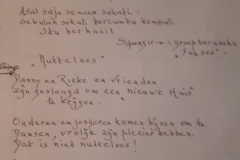 Asal saja semua sehati:
Sebulan sekali bercumba kembali
Itu berhasil
"Nutteloos"
Danny en Rieke en vrienden
zijn geslaagd om een nieuwe Huis
te krijgen.
Ouderen en jongeren komen bijeen om te
Dansen, vrolijk zijn plezier hebben.
Dat is niet nutteloos!